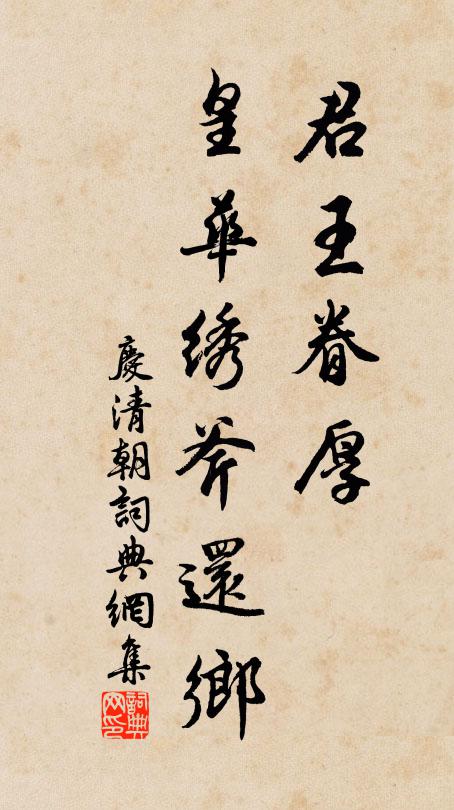 君王眷厚
皇華綉斧還鄉
慶清朝詞典網集
詞典
网印